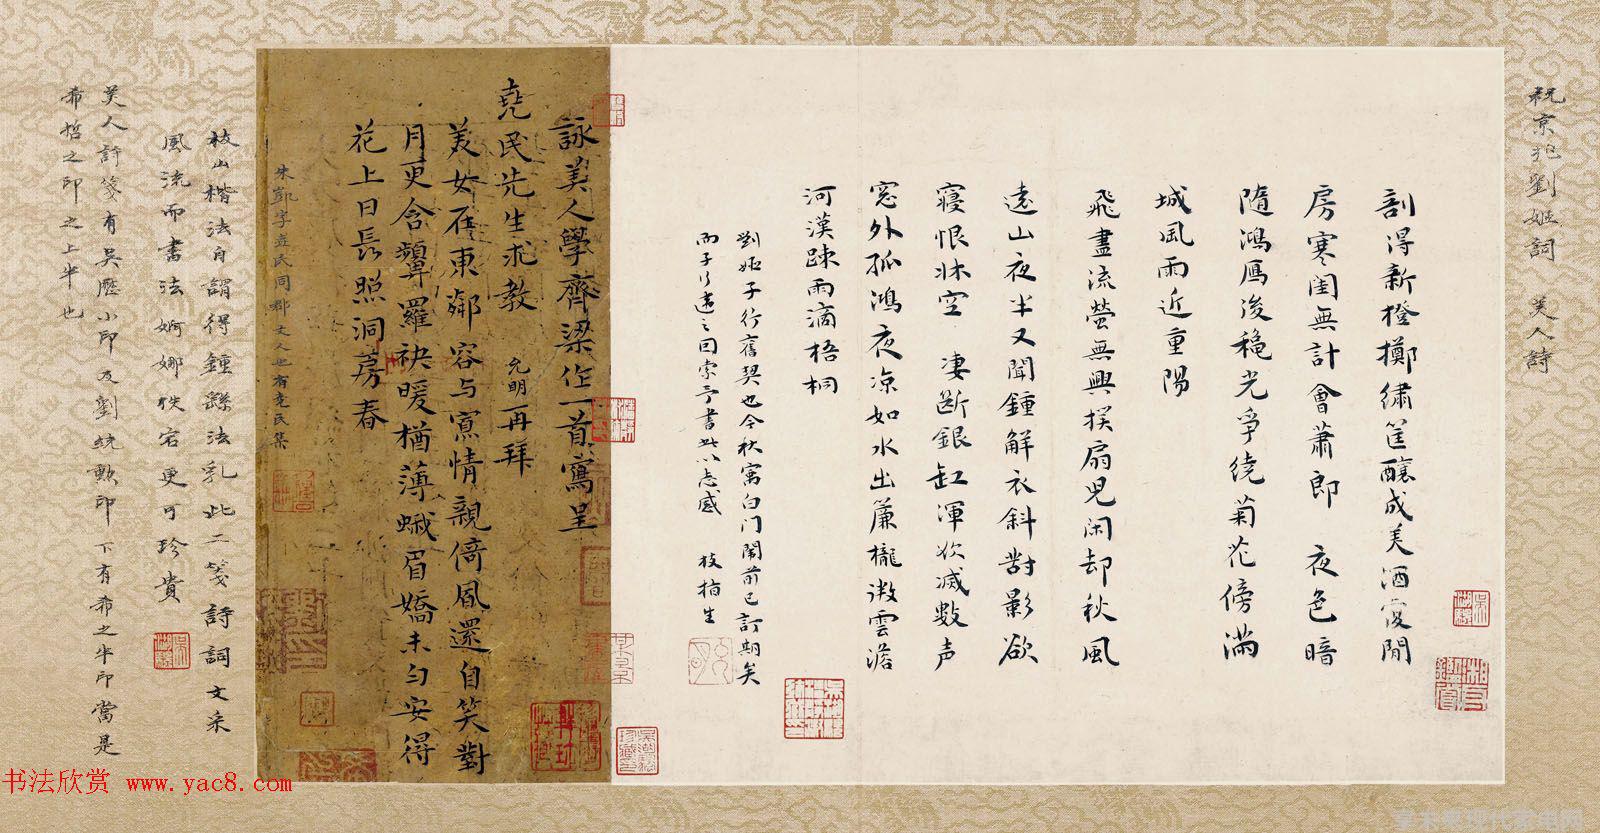 祝京兆劉姬詞 美人詩
剖得新橙擲繡筐釀成美酒夜闌
房寒闺無計會蕭郎 夜色暗
隨鴻鴈後穐光爭繞菊花傍滿
城風雨近重陽
飛盡流螢無興撲扇兒闲却秋風
遠山夜半又聞鍾解衣斜對影欲
寢恨牀空 凄斷銀缸渾欲滅數声
窓外孤鴻夜凉如水出簾櫳微雲澹
河漢疎雨滴梧桐
劉姬子行舊契也今秋寓白门闈前已訂期矣
而子行遣之回索予書此以志感 枝指生
詠美人學齊梁作一首寫呈
堯民先生求教 允明再拜
美女在東鄰容与寫情親倚風還自笑對
月更含顰羅袂暖猶薄蛾眉嬌未匀安得
花上日長照洞房春
朱凱字堯民同郡文人也有堯民集
枝山楷法自謂得鍾繇法乳此二箋詩詞文采
風流而書法婀娜佚宕更可珍貴
美人詩箋有吳歷小印及劉統勲印下有希之半印當是
希哲之印之上半也
书法欣赏 www.yac8.com